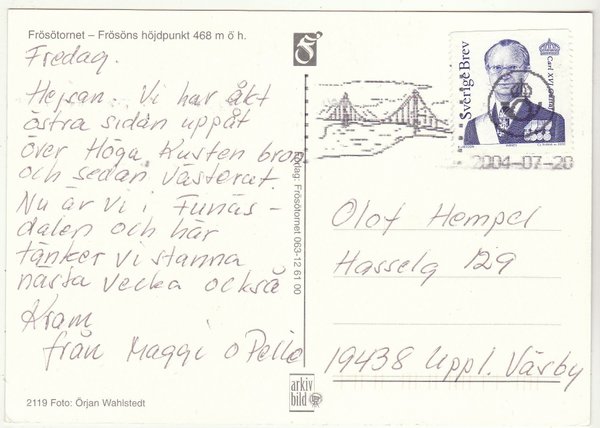 Frösötornet – Frösöns höjdpunkt 468 m ö h.
Fredag.
Hejsan. Vi har åkt
östra sidan uppåt
över Höga Kusten bron
och sedan västerut.
Nu är vi i Funäs-
dalen och här
tänker vi stanna
nästa vecka också
Kram
från Maggi o Pelle
2119 Foto: Örjan Wahlstedt
Frösötornet 063-12 61 00
arkiv
bild
Sverige Brev
Carl XVI Gustaf
2004-07-20
Olof Hempel
Hasselg 129
19438 Uppl. Väsby